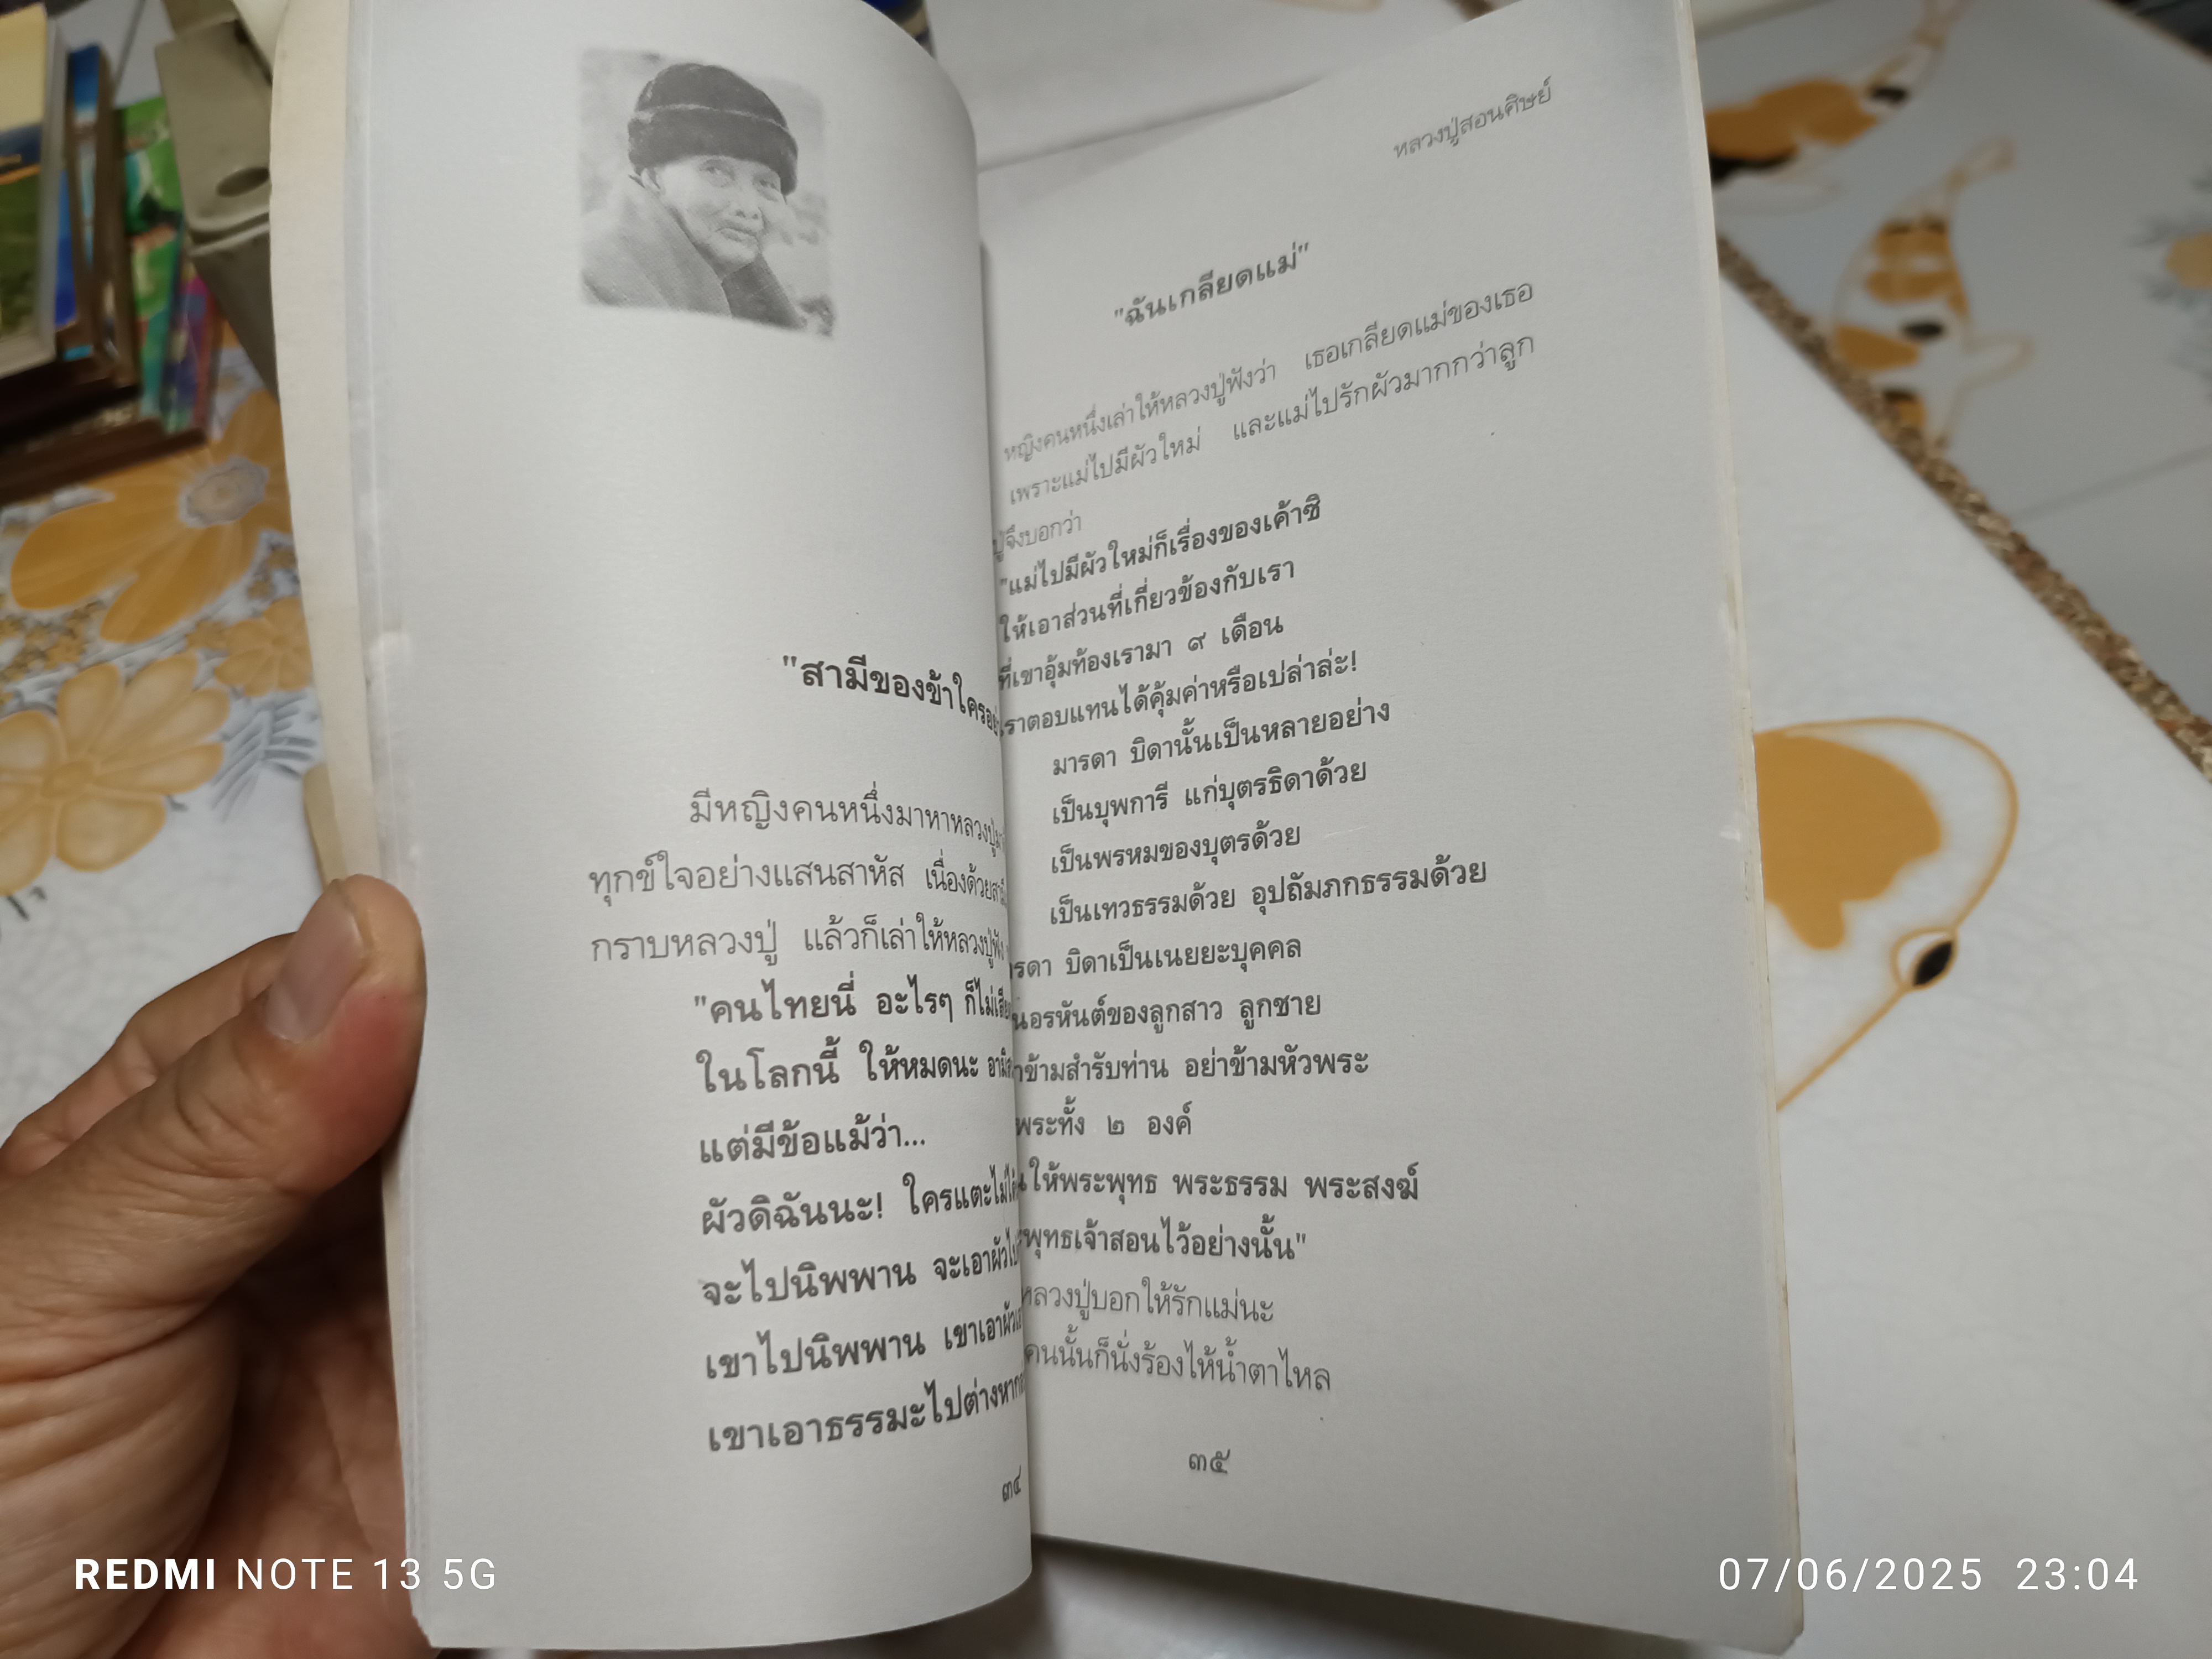 "สามีของข้าใคร
มีหญิงคนหนึ่งมาหาหลวงปู่
ทุกข์ใจอย่างแสนสาหัส เนื่องด้วย
กราบหลวงปู่ แล้วก็เล่าให้หลวงปู่ฟัง
"คนไทยนี่ อะไรๆ ก็ไม่
ในโลกนี้ ให้หมดนะ
แต่มีข้อแม้ว่า...
ผัวดิฉันนะ! ใครแตะไม่ได้
จะไปนิพพาน จะเอาผัวไป
เขาไปนิพพาน เขาเอาผัว
เขาเอาธรรมะไปต่างหาก
๓๔
หลวงปู่สอนศิษย์
"ฉันเกลียดแม่"
หญิงคนหนึ่งเล่าให้หลวงปู่ฟังว่า เธอเกลียดแม่ของเธอ
เพราะแม่ไปมีผัวใหม่ และแม่ไปรักผัวมากกว่าลูก
ปู่จึงบอกว่า
"แม่ไปมีผัวใหม่ก็เรื่องของเค้าซิ
ให้เอาส่วนที่เกี่ยวข้องกับเรา
ที่เขาอุ้มท้องเรามา ๙ เดือน
เราตอบแทนได้คุ้มค่าหรือเปล่าล่ะ!
มารดา บิดานั้นเป็นหลายอย่าง
เป็นบุพการี แก่บุตรธิดาด้วย
เป็นพรหมของบุตรด้วย
เป็นเทวธรรมด้วย อุปถัมภกธรรมด้วย
บิดาเป็นเนยยะบุคคล
อรหันต์ของลูกสาว ลูกชาย
ข้ามสำรับท่าน อย่าข้ามหัวพระ
พระทั้ง ๒ องค์
ให้พระพุทธ พระธรรม พระสงฆ์
พุทธเจ้าสอนไว้อย่างนั้น"
หลวงปู่บอกให้รักแม่นะ
คนนั้นก็นั่งร้องไห้น้ำตาไหล
๓๕
REDMI NOTE 13 5G
07/06/2025 23:04